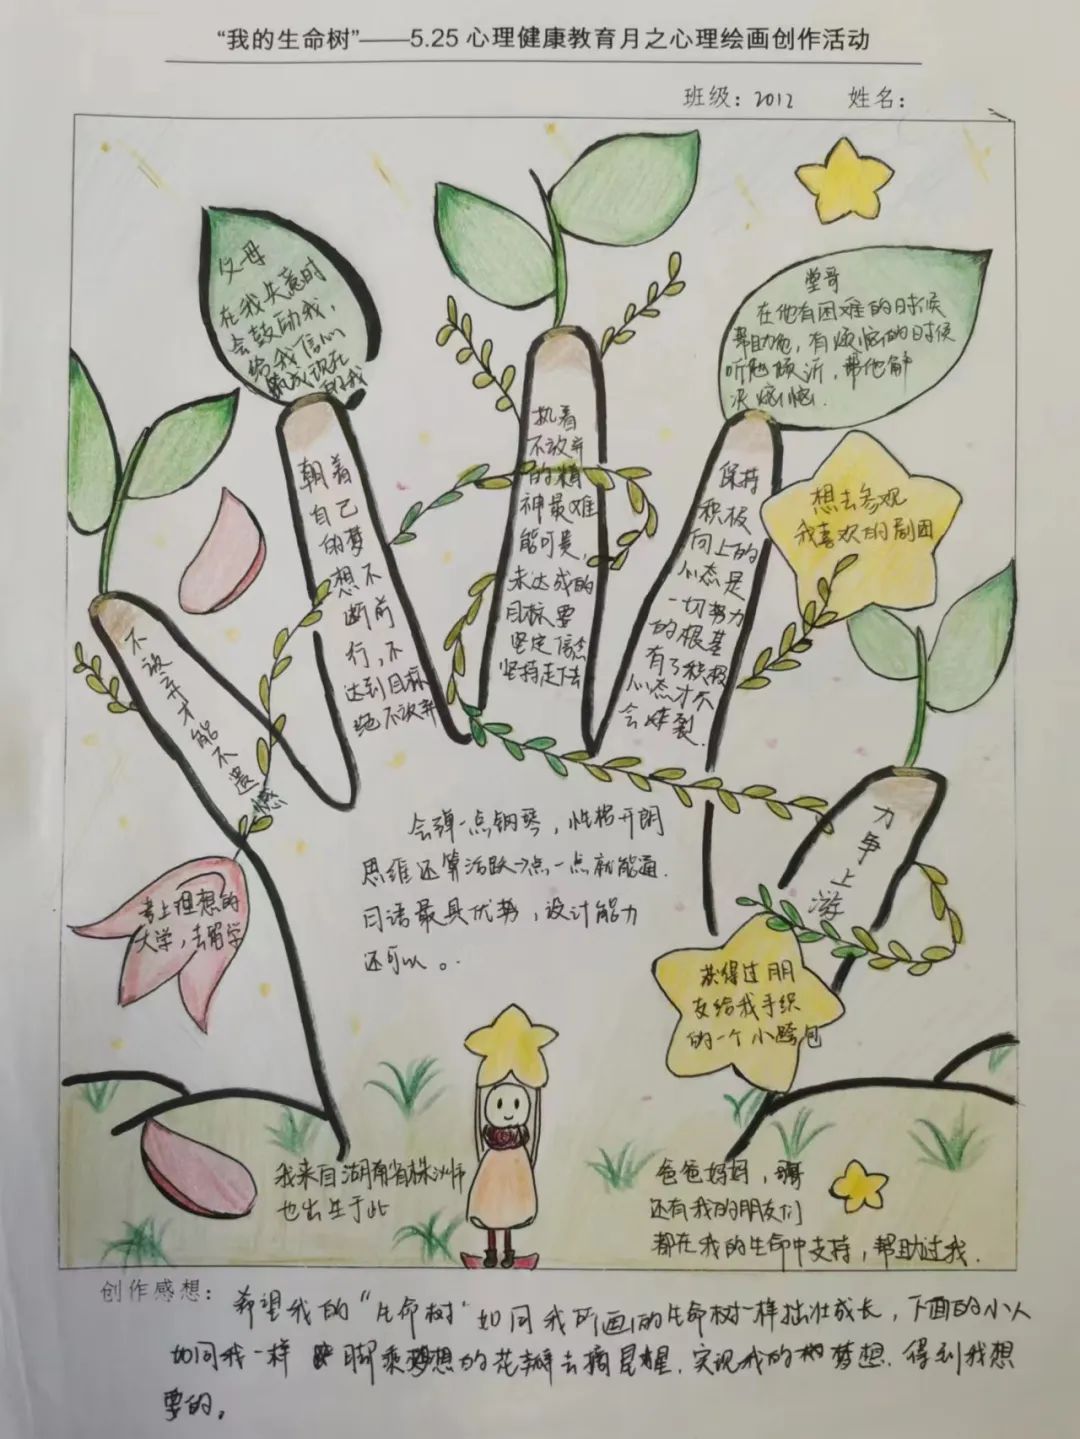 “我的生命树”——5.25 心理健康教育月之心理绘画创作活动
班级：2012 姓名：
父母
在我失意时
会鼓励我，
给我信心
的我
堂哥
在他有困难的时候
帮助他，有烦恼的时候
听他倾诉，帮他解
决烦恼.
想去参观
我喜欢的剧团
不放弃才能不遗憾
朝着
自己
的梦
想不
断前
行，不
达到目标
绝不放弃
执着
不放弃
的精
神最难
能可贵，
未达成的
目标要
坚定信念
坚持走下去
保持
积极
向上的
心态是
一切努力
的根基
有了积极
心态才不
会炸裂.
力争上游
会弹一点钢琴，性格开朗
思维还算活跃→点一点就能通.
日语最具优势，设计能力
还可以。.
考上理想的
大学，去留学
获得过朋
友给我手织
的一个小跨包
我来自湖南省株洲市
也出生于此
爸爸妈妈，哥
还有我的朋友们
都在我的生命中支持，帮助过我.
创作感想：希望我的“生命树”如同我所画的生命树一样拙壮成长，下面的小人
如同我一样 脚乘梦想的花瓣去摘星星.实现我的梦想.得到我想
要的。